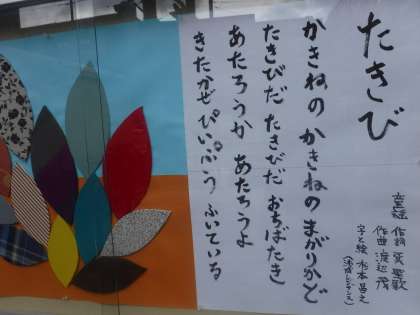 たきび
童謡 作詞 巽 聖歌
作曲 渡辺 茂
かきねの かきねの まがりかど
たきびだ たきびだ おちばたき
あたろうか あたろうよ
きたかぜぴいぷう ふいている